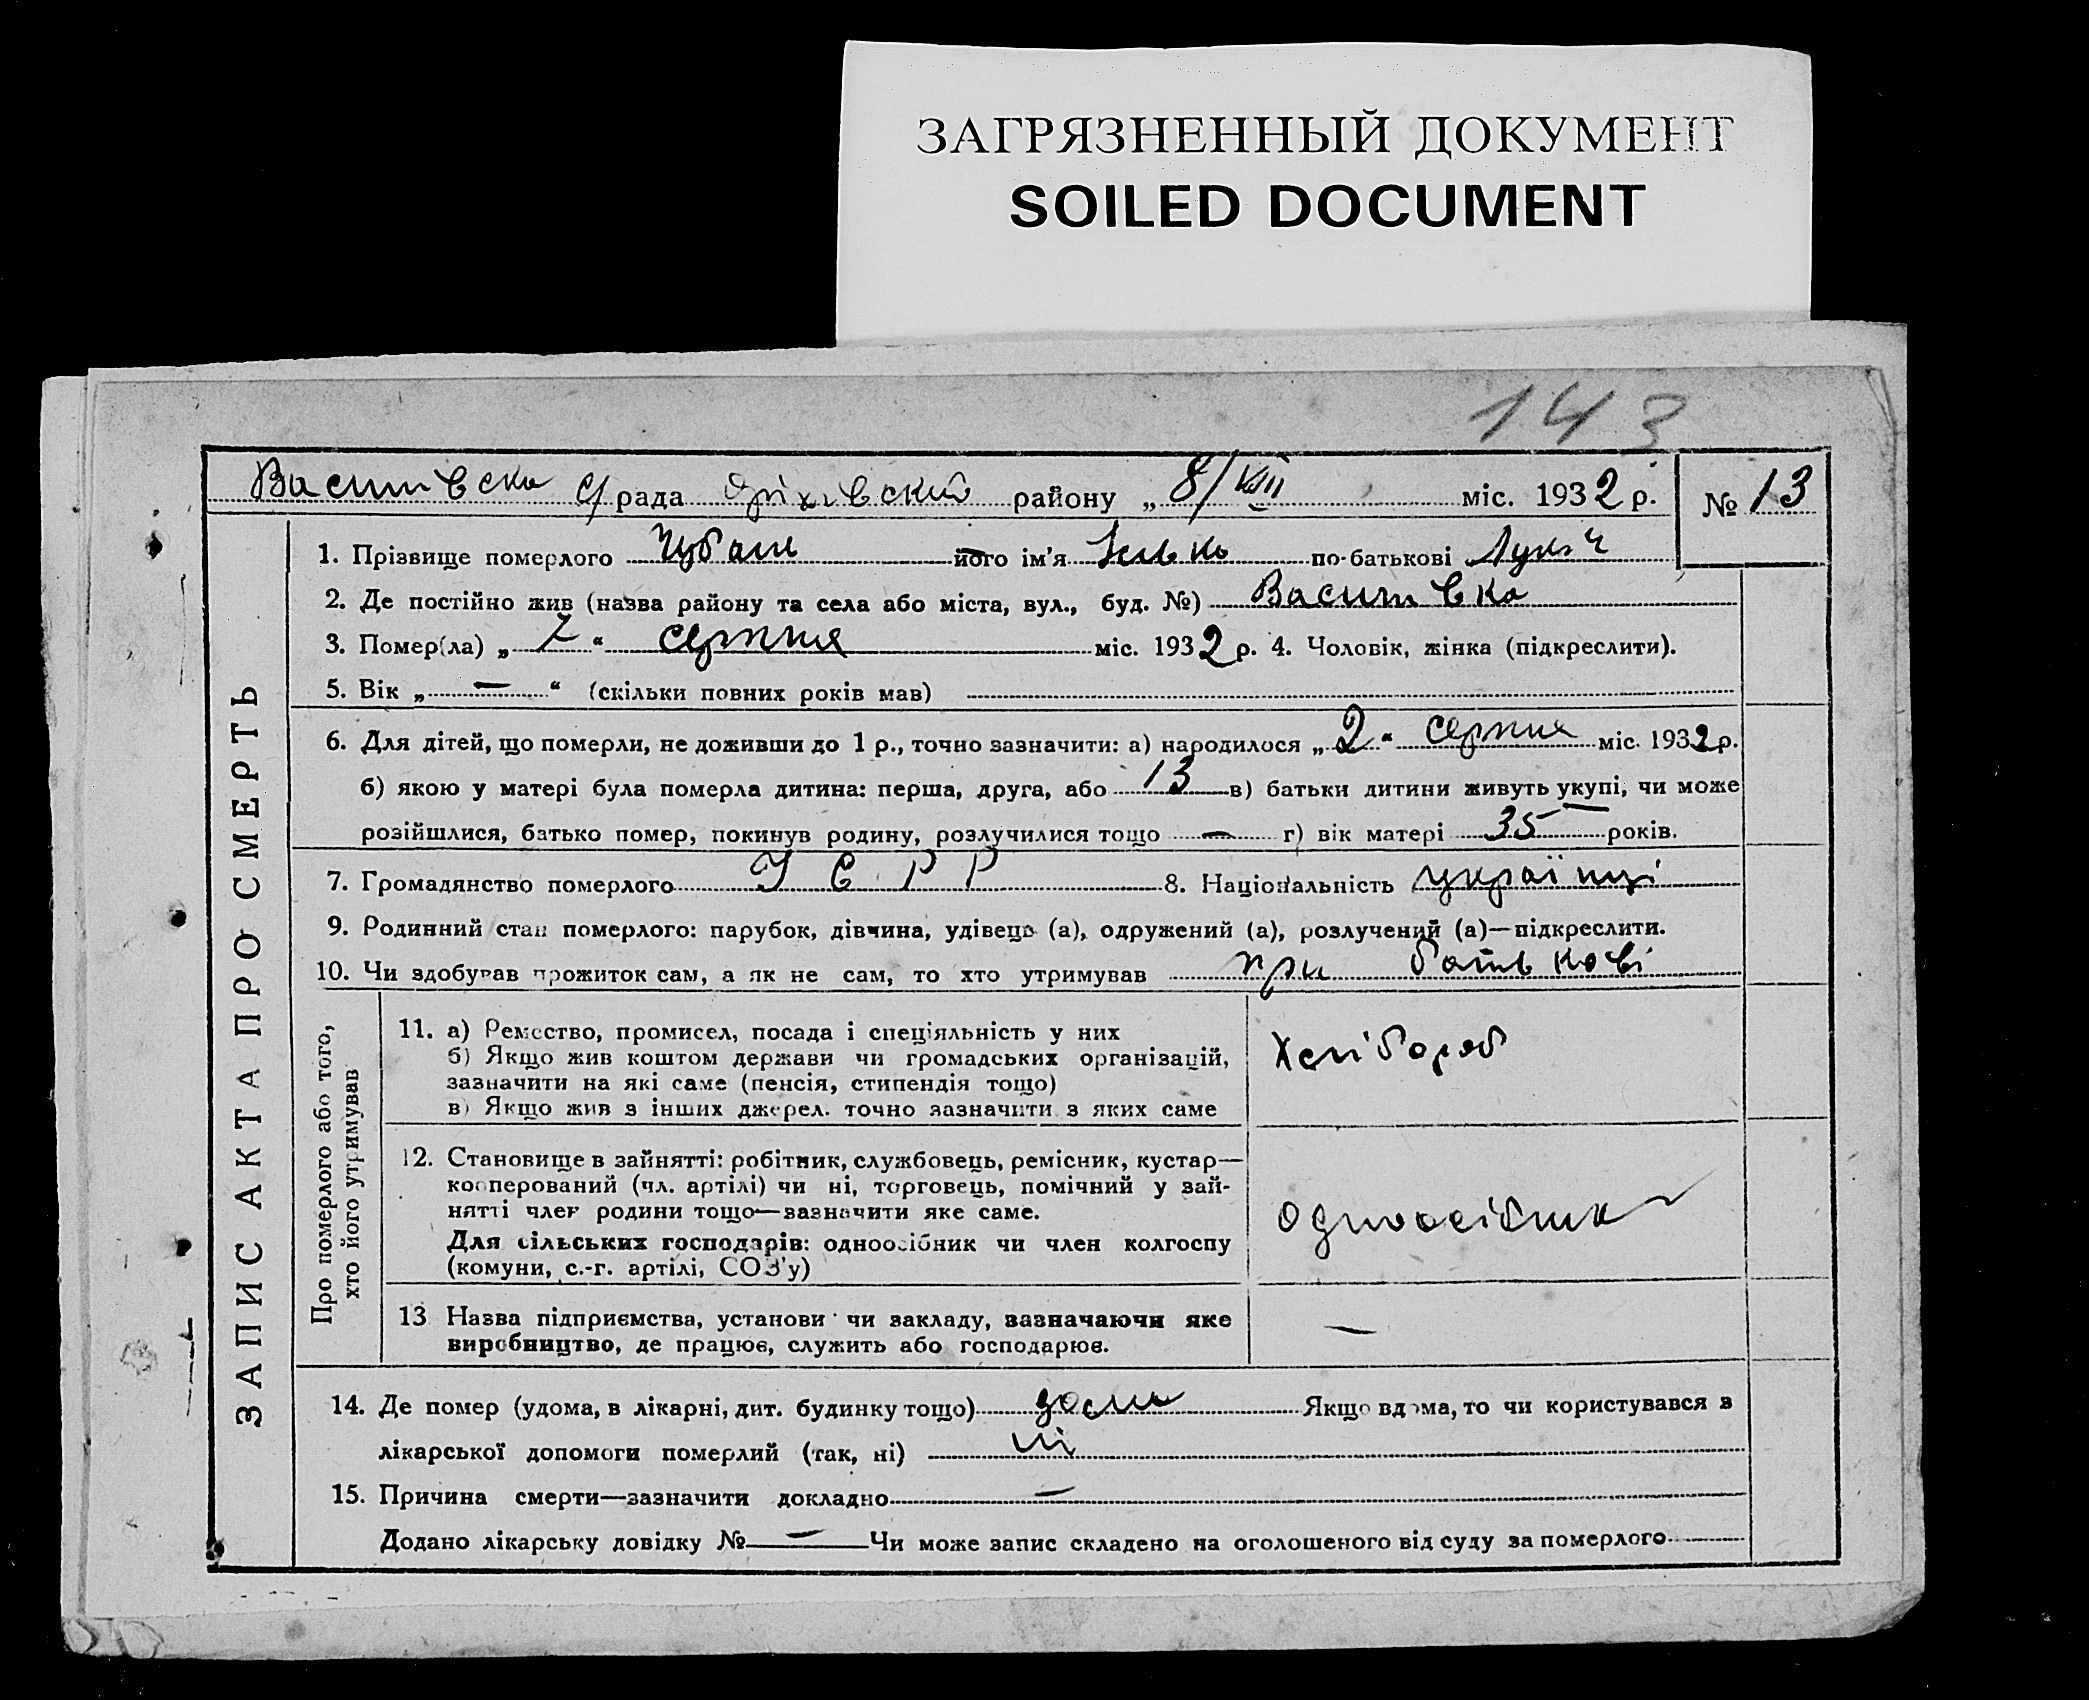 ЗАГРЯЗНЕННЫЙ ДОКУМЕНТ
SOILED DOCUMENT
143
с/рада району „ 8/VIII міс. 1932 р. № 13
ЗАПИС АКТА ПРО СМЕРТЬ
1. Прізвище померлого Чубань його ім'я Ілько по-батькові
2. Де постійно жив (назва району та села або міста, вул., буд. №)
3. Помер(ла) „ “ серпня міс. 1932 р. 4. Чоловік, жінка (підкреслити).
5. Вік „ — “ (скільки повних років мав)
6. Для дітей, що померли, не доживши до 1 р., точно зазначити: а) народилося „ 2 “ серпня міс. 1932 р.
б) якою у матері була померла дитина: перша, друга, або 13 в) батьки дитини живуть укупі, чи може
розійшлися, батько помер, покинув родину, розлучилися тощо — г) вік матері 35 років.
7. Громадянство померлого УСРР 8. Національність українці
9. Родинний стан померлого: парубок, дівчина, удівець (а), одружений (а), розлучений (а)—підкреслити.
10. Чи здобував прожиток сам, а як не сам, то хто утримував при батькові
Про померлого або того,
хто його утримував
11. а) Ремество, промисел, посада і спеціяльність у них
б) Якщо жив коштом держави чи громадських організацій,
зазначити на які саме (пенсія, стипендія тощо)
в) Якщо жив з інших джерел. точно зазначити з яких саме
Хлібороб
12. Становище в зайнятті: робітник, службовець, ремісник, кустар—
кооперований (чл. артілі) чи ні, торговець, помічний у зай-
нятті член родини тощо—зазначити яке саме.
Для сільських господарів: одноосібник чи член колгоспу
(комуни, с.-г. артілі, СОЗ'у)
одноосібник
13 Назва підприємства, установи чи закладу, зазначаючи яке
виробництво, де працює, служить або господарює.
—
14. Де помер (удома, в лікарні, дит. будинку тощо) дома Якщо вдома, то чи користувався з
лікарської допомоги померлий (так, ні) ні
15. Причина смерти—зазначити докладно —
Додано лікарську довідку № — Чи може запис складено на оголошеного від суду за померлого